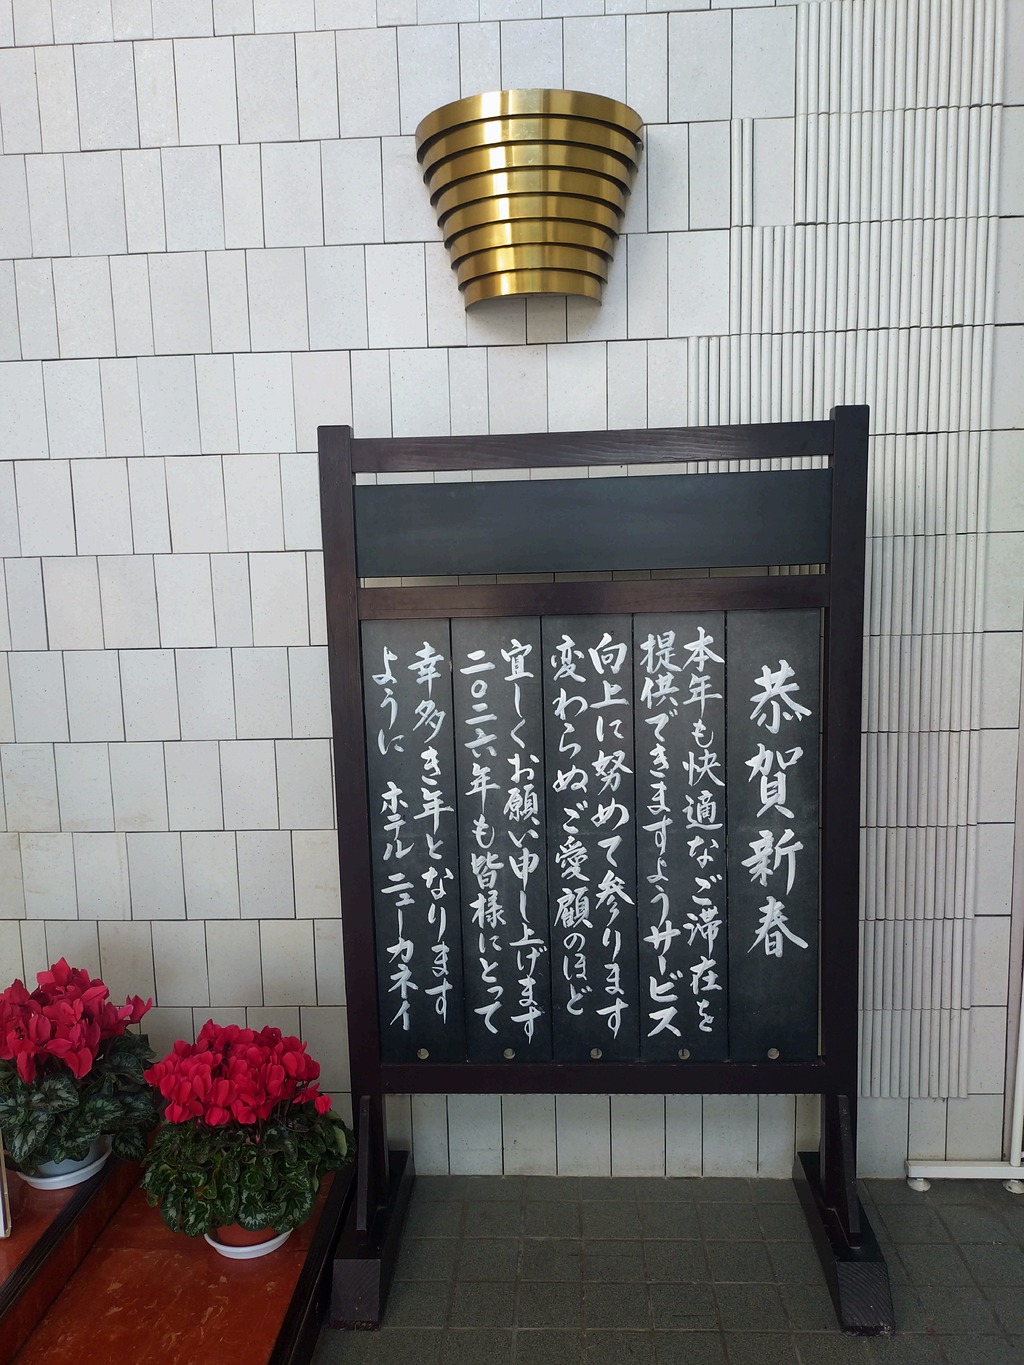 恭賀新春
本年も快適なご滞在を
提供できますようサービス
向上に努めて参ります
変わらぬご愛顧のほど
宜しくお願い申し上げます
二〇二六年も皆様にとって
幸多き年となります
ように ホテル ニューカネイ